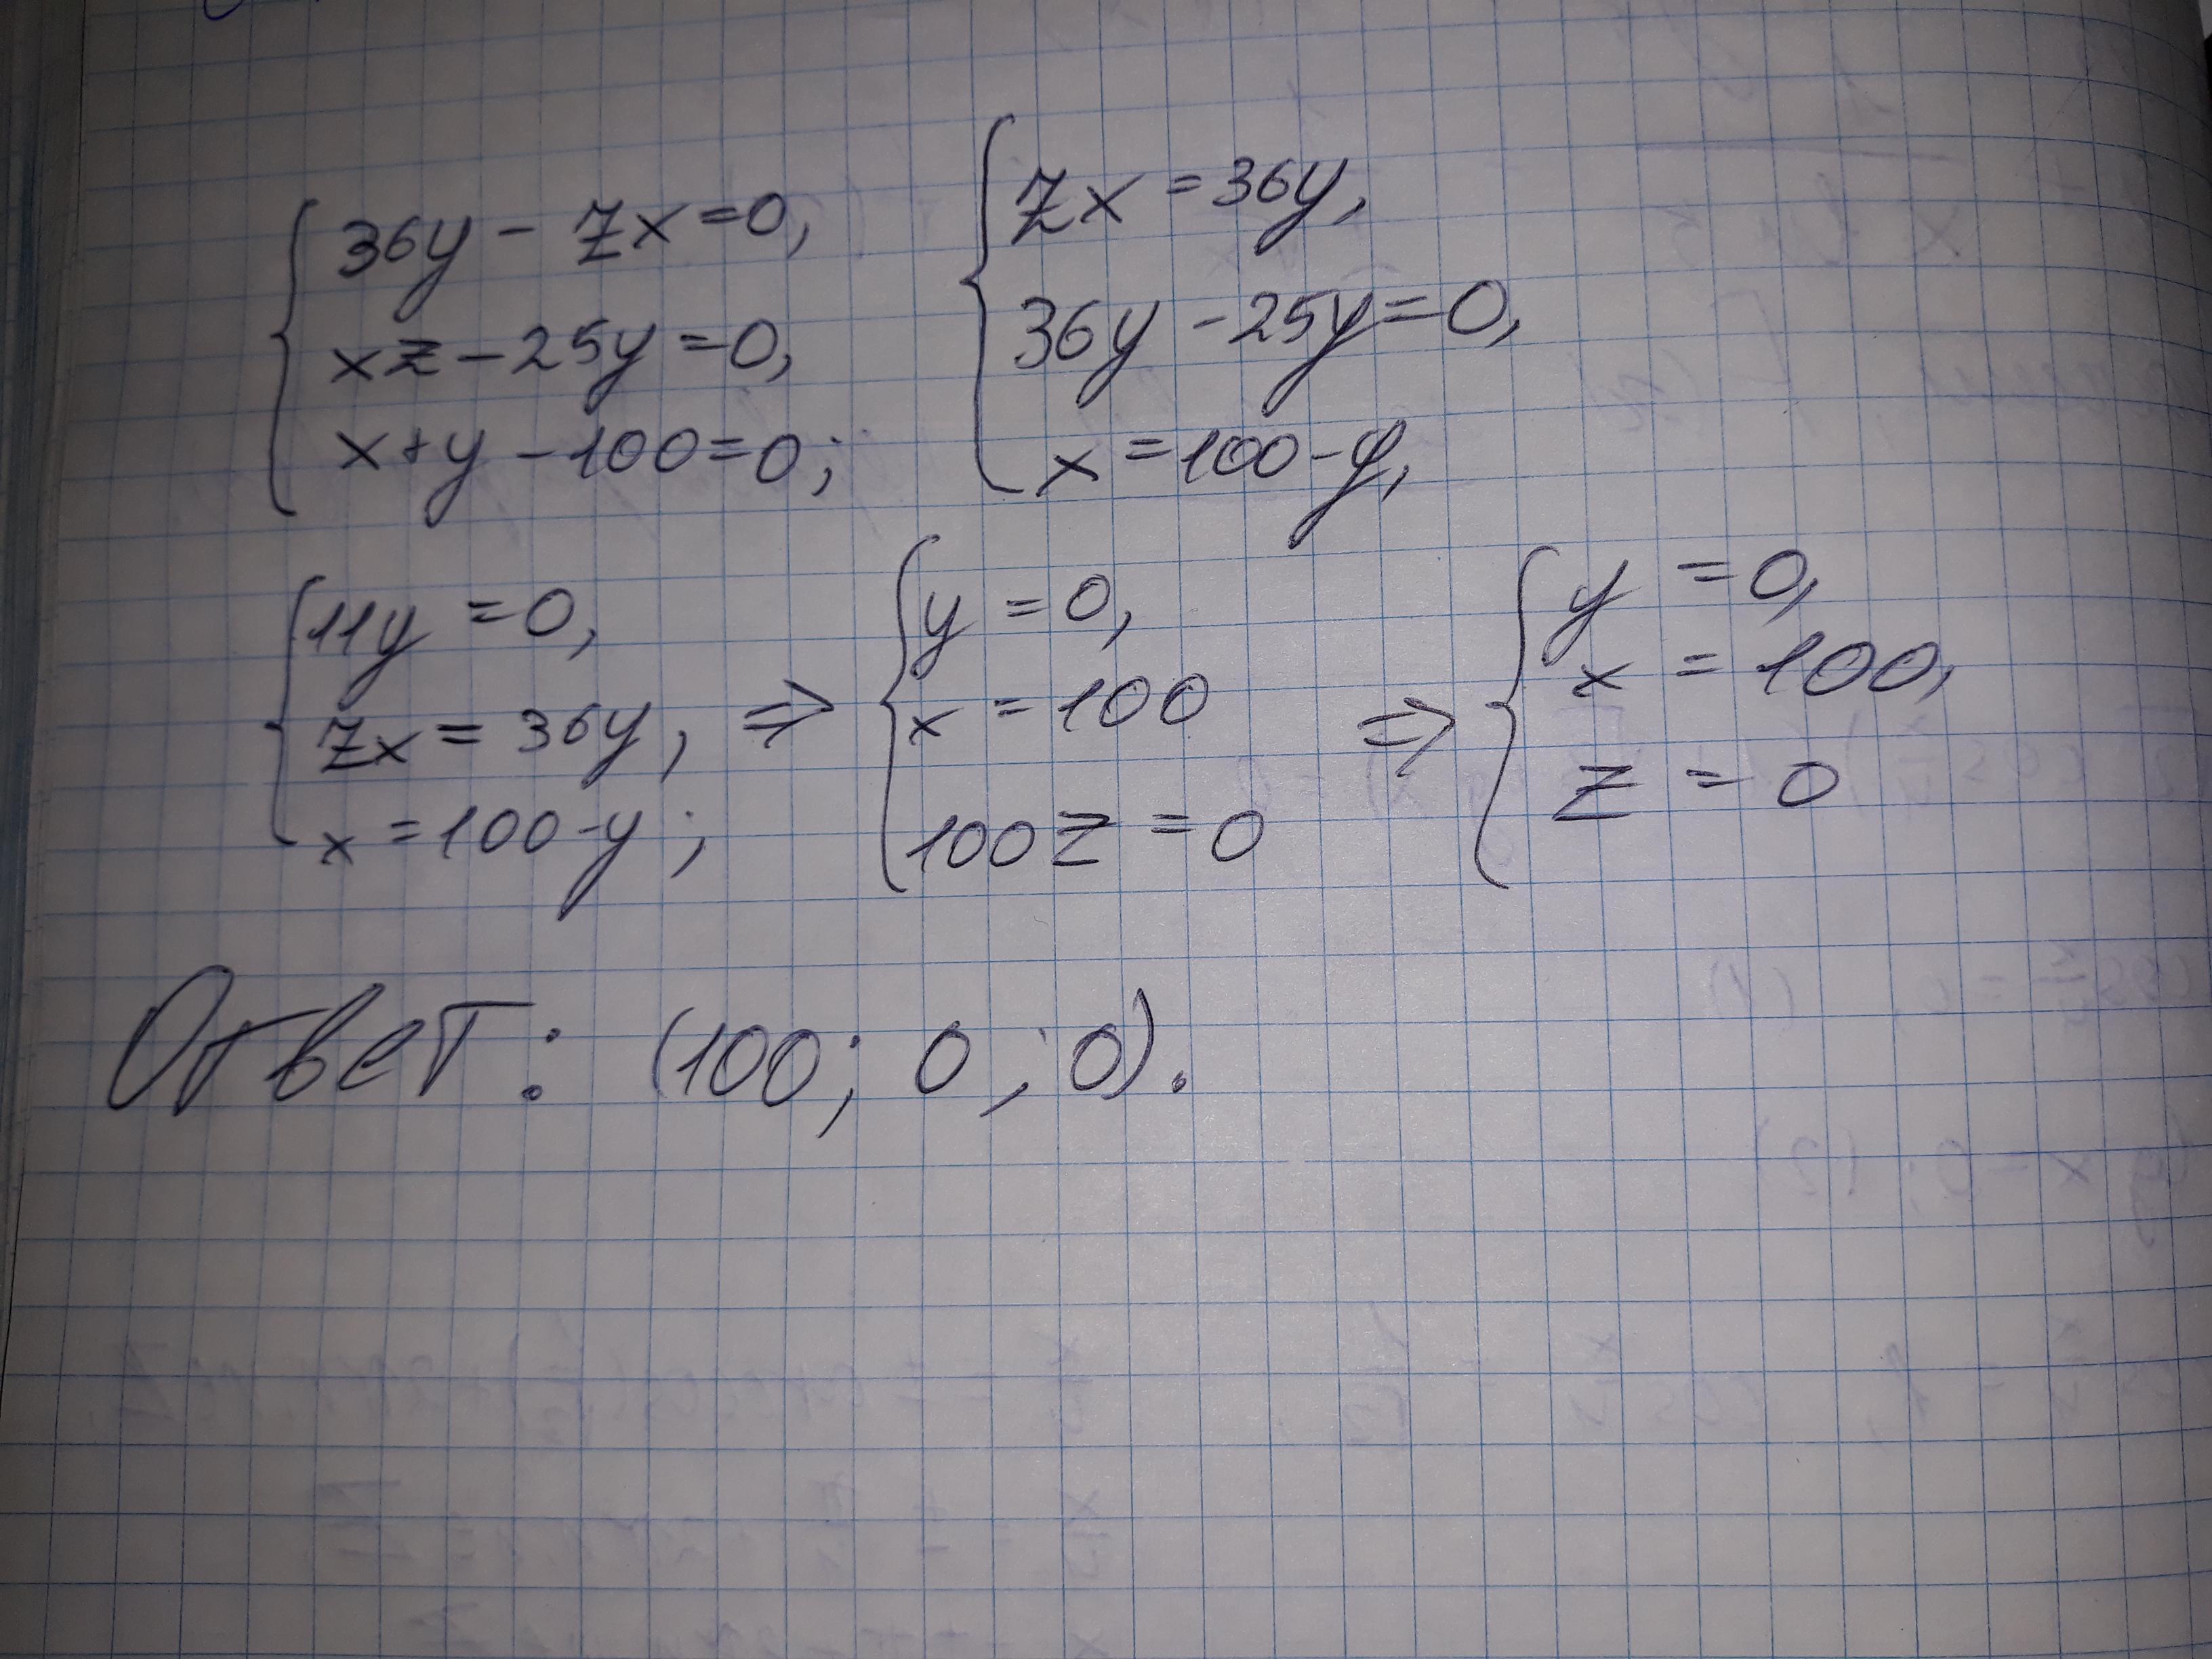 36y - zx = 0,
xz - 25y = 0,
x + y - 100 = 0;
zx = 36y,
36y - 25y = 0,
x = 100 - y,
11y = 0,
zx = 36y,
x = 100 - y;
⇒
y = 0,
x = 100
100z = 0
⇒
y = 0,
x = 100,
z = 0
Ответ: (100; 0; 0).